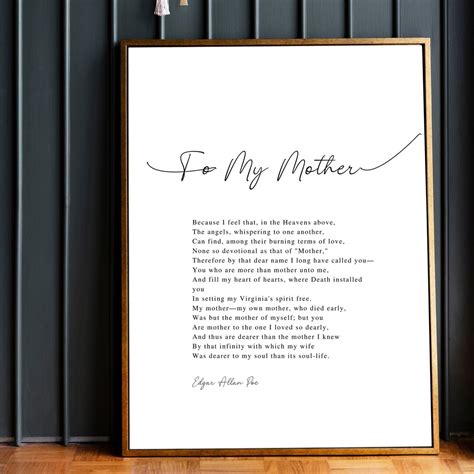 To My Mother
Because I feel that, in the Heavens above,
The angels, whispering to one another,
Can find, among their burning terms of love,
None so devotional as that of "Mother,"
Therefore by that dear name I long have called you—
You who are more than mother unto me,
And fill my heart of hearts, where Death installed
you
In setting my Virginia's spirit free.
My mother—my own mother, who died early,
Was but the mother of myself; but you
Are mother to the one I loved so dearly,
And thus are dearer than the mother I knew
By that infinity with which my wife
Was dearer to my soul than its soul-life.
Edgar Allan Poe